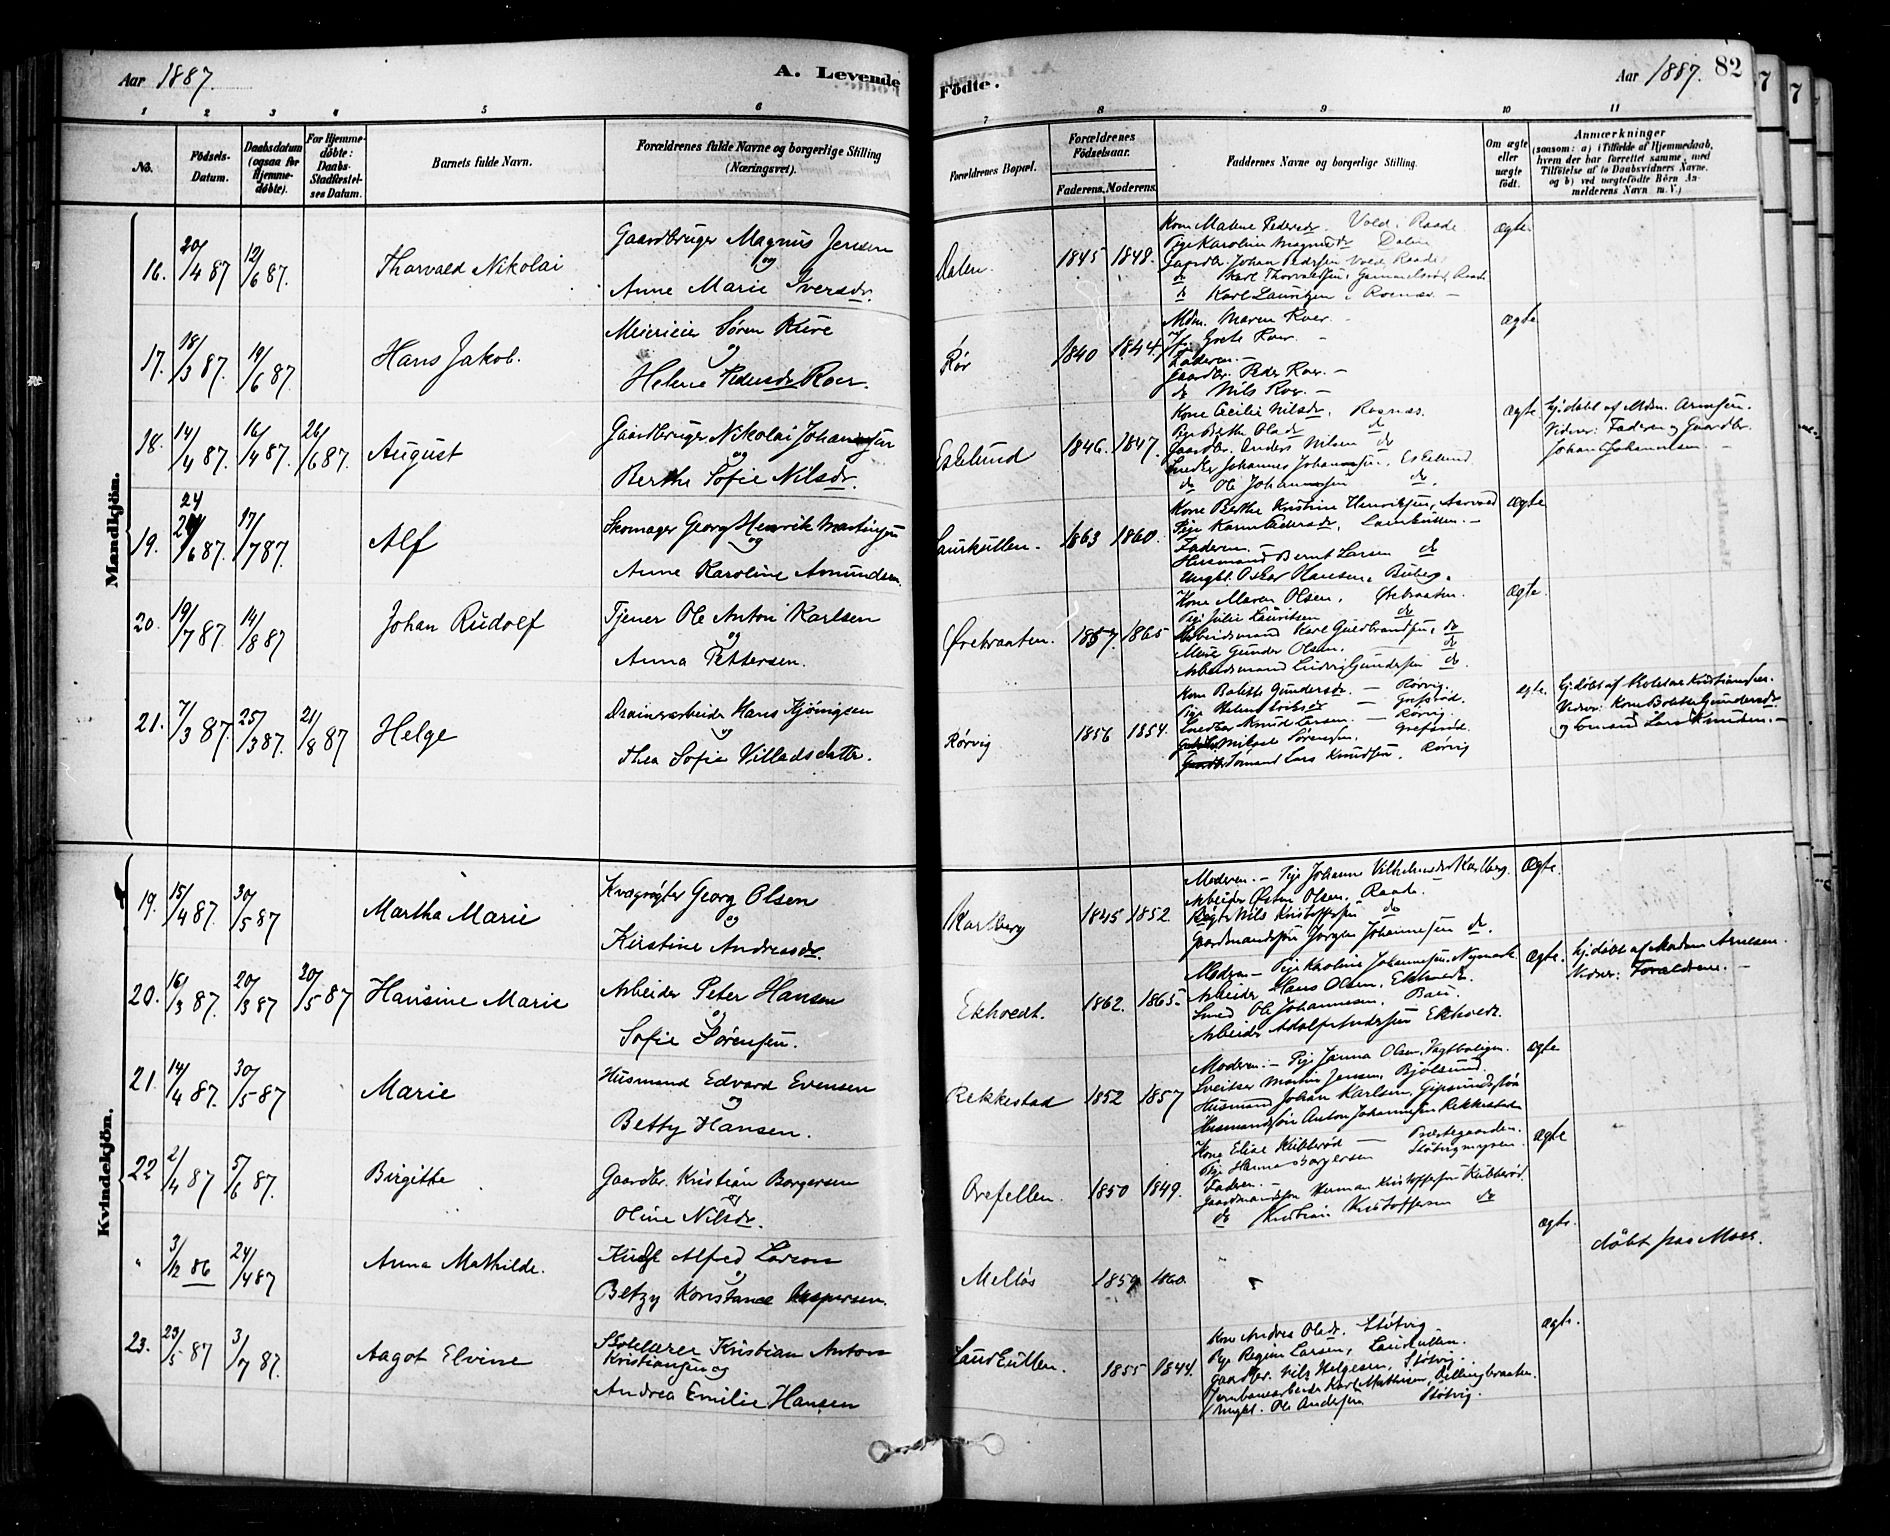 Aar 1887.
A. Levende
Födte.
Aar 1887. 82
1 2 3 4 5 6 7 8 9 10 11
No.
Födsels-Datum.
Daabsdatum (ogsaa for Hjemme-döbte).
For Hjemme-döbte: Daabs-Stadfæstel-ses Datum.
Barnets fulde Navn.
Forældrenes fulde Navne og borgerlige Stilling (Næringsvei).
Forældrenes Bopæl.
Forældrenes Födselsaar.
Faderens. Moderens.
Faddernes Navne og borgerlige Stilling.
Om ægte eller uægte födt.
Anmærkninger
(saasom: a) i Tilfælde af Hjemmedaab, hvem der har forrettet samme, med Tilföielse af to Daabsvidners Navne, og b) ved uægtefödte Börn An-melderens Navn m. V.)
Mandkjön.
16. 20/4 87 12/6 87. Thorvald Nikolai
Gaardbruger Magnus Jensen
og
Anne Marie Iversdr.
Dalen. 1845 1848.
Kone Malene Pedersdr. Vold i Raade
Pige Karoline Magnusdr Dalen
Gaardbr. Johan Pedersen Vold Raade
do Karl Thorvaldsen, Raade
do Karl Lauritzen, Roenæs. —
ægte
17. 18/3 87. 19/6 87. Hans Jakob.
Meierieier Søren Kure
og
Helene Pedersdr Roer.
Rør 1840 1844.
Mdm. Maren Roer. —
Grete Roer. —
Faderen. —
Gaardbr. Peder Roer. —
do Nils Roer. —
ægte
18. 14/4 87. 16/4 87. 26/6 87. August
Gaardbruger Nikolai Johannesen
og
Berthe Sofie Nilsdr.
Eskelund 1846. 1847.
Kone Cecilie Nilsdr, Rognæs.
Pige Berthe Olsdr do
Gaardbr. Anders Nilsen do
Snedker Johannes Johannesen, Eskelund
do Ole Johannesen do.
ægte
Hj.døbt af Mdm. Arnesen.
Vidner: Faderen og Gaardbr.
Johan Johannesen. —
19. 24/6 87. 17/7 87. Alf
Skomager Georg Henrik Martinsen
og
Anne Karoline Amundsen.
Laurkullen. 1863 1860.
Kone Berthe Kristine Henriksen,
Pige Karen Pedersdr, Laurkullen. —
Faderen. —
Husmand Bernt Larsen do
Ungkl. Oskar Hansen, Buberg.
ægte
20. 19/7 87. 14/8 87 Johan Rudolf
Tjener Ole Anton Karlsen
og
Anna Pettersen.
Ørebraaten. 1857. 1865
Kone Maren Olsen, Ørebraaten.
Pige Julie Lauritsen do
Arbeidsmand Karl Guldbrandsen, do
Gunder Olsen. do
Arbeidsmand Ludvig Gundersen do.
ægte
21. 7/3 87. 25/3 87. 21/8 87 Helge
Drainsarbeider Hans Kjönigsen
og
Thea Sofie Villadsdatter.
Rørvig 1856 1854.
Kone Bolette Gundersdr. — Rørvig.
Pige Helene Eriksdr — Grefsrød.
Snedker Knud Larsen. — Rørvig.
Mikael Sørensen, Grefsrød.
Sømand Lars Knudsen. Rørvig
ægte.
Hj.døbt af Kristiansen.
Vidner: Kone Bolette Gundersdr
og Sømand Lars Knudsen. —
Kvindekjön.
19. 15/4 87. 30/5 87 Martha Marie
Kvægrøgter Georg Olsen
og
Kirstine Andreasdr.
Karlberg 1845 1852.
Moderen. — Pige Johanne Vilhelmsdr Karlberg.
Arbeider Østen Olsen, Raade. —
Røgter Nils Kristoffersen do
Gaardmandssøn Jørgen Johannesen do.
Ægte.
20. 16/3 87. 20/3 87 30/5 87 Hansine Marie
Arbeider Peter Hansen
og
Sofie Sørensen.
Ekhoedt. 1862. 1865.
Moderen — Pige Karoline Johannesen. Nymark
Arbeider Hans Olsen, Ekhoedt.
Smed Ole Johannesen, Bau.
Arbeider Adolf Andersen Ekhoedt.
Ægte.
Hj.døbt af Madam Arnesen.
Vidner: Forældrene. —
21. 14/4 87. 30/5 87 Marie
Husmand Edvard Evensen
og
Betty Hansen.
Rekkestad 1852 1857
Moderen. — Pige Janna Olsen, Vagtboligen.
Sveitser Martin Jensen, Bjølsund.
Husmand Johan Karlsen, Gipsundstøa
Husmandssøn Anton Johannesen Rekkestad
ægte
22 2/4 87 5/6 87. Birgitte
Gaardbr. Kristian Borgersen
og
Oline Nilsdr.
Orefellen. 1850 1849.
Kone Elise Kibberød — Præstegaarden.
Pige Hanna Borgersen Støtvigmyren.
Faderen. —
Gaardmandssøn Herman Kristoffersen Kibberød.
do Kristian Kristoffersen do
ægte
" 3/12 86 24/4 87 Anna Mathilde.
Kudsk Alfred Larsen
og
Betzy Konstance Kaspersen.
Melløs 1859 1860.
ægte.
døbt paa Moss.
23. 23/5 87 3/7 87. Aagot Elvine
Skolelærer Kristian Anton
Kristiansen og
Andrea Emilie Hansen
Laurkullen. 1855 1844.
Kone Andrea Olsdr. Støtvig
Pige Regine Larsen, Laurkullen.
Gaardbr. Nils Helgesen, Støtvig.
Jernbanearbeider Karl Mathisen, Dillingbraaten.
Ungkl. Ole Andersen Støtvig.
ægte.